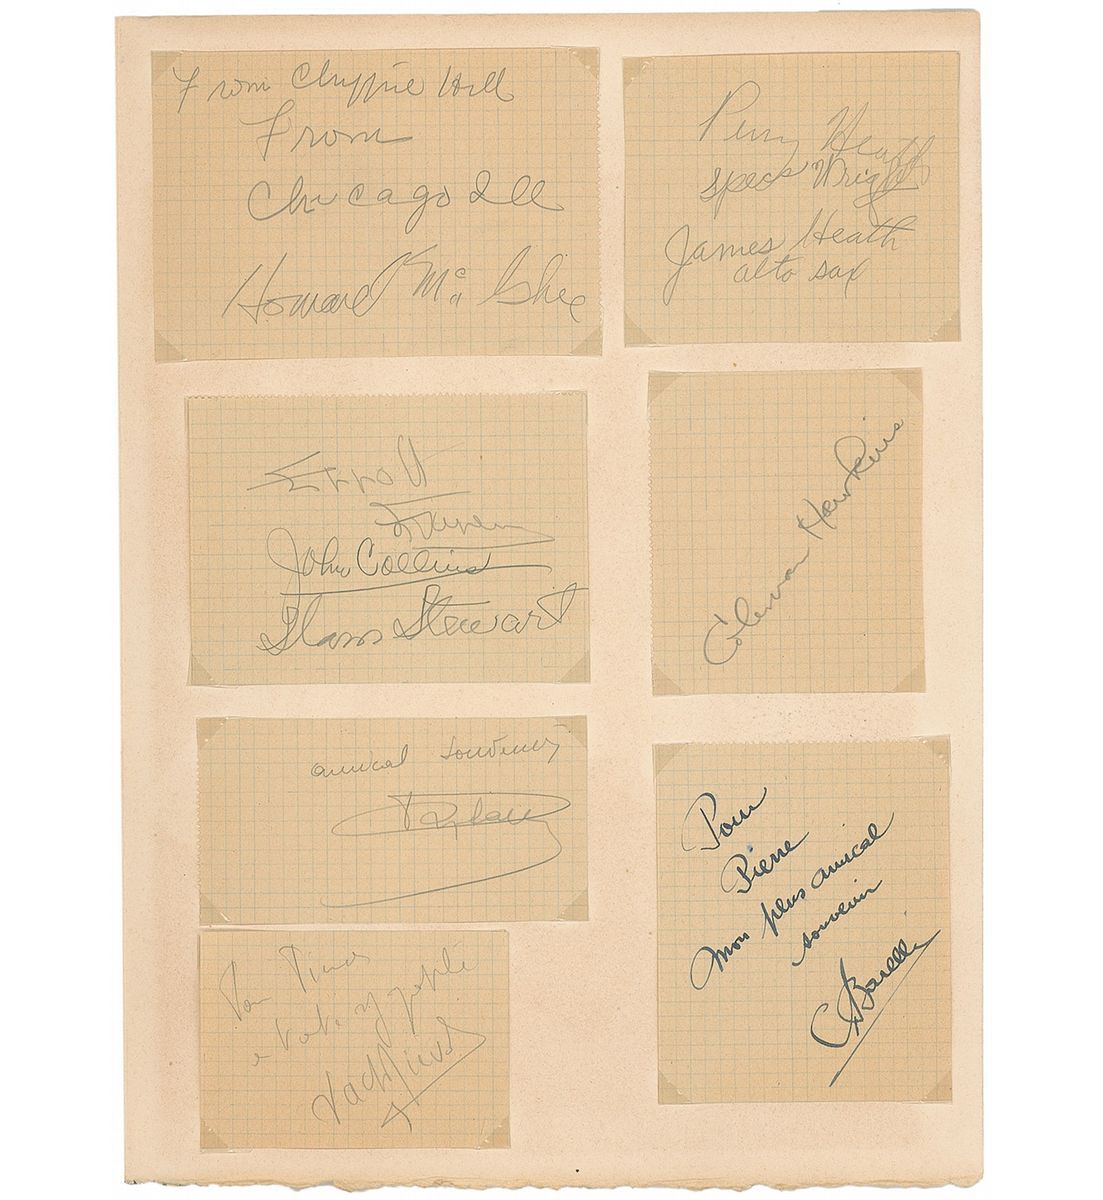 From Chippie Hill
From
Chicago Ill
Howard Mc Ghee
Percy Heath
Specs Wright
James Heath
alto sax
Erroll
Garner
John Collins
Slam Stewart
Coleman Hawkins
amical souvenir
Pour
Pierre
mon plus amical
souvenir
Pour Pierre